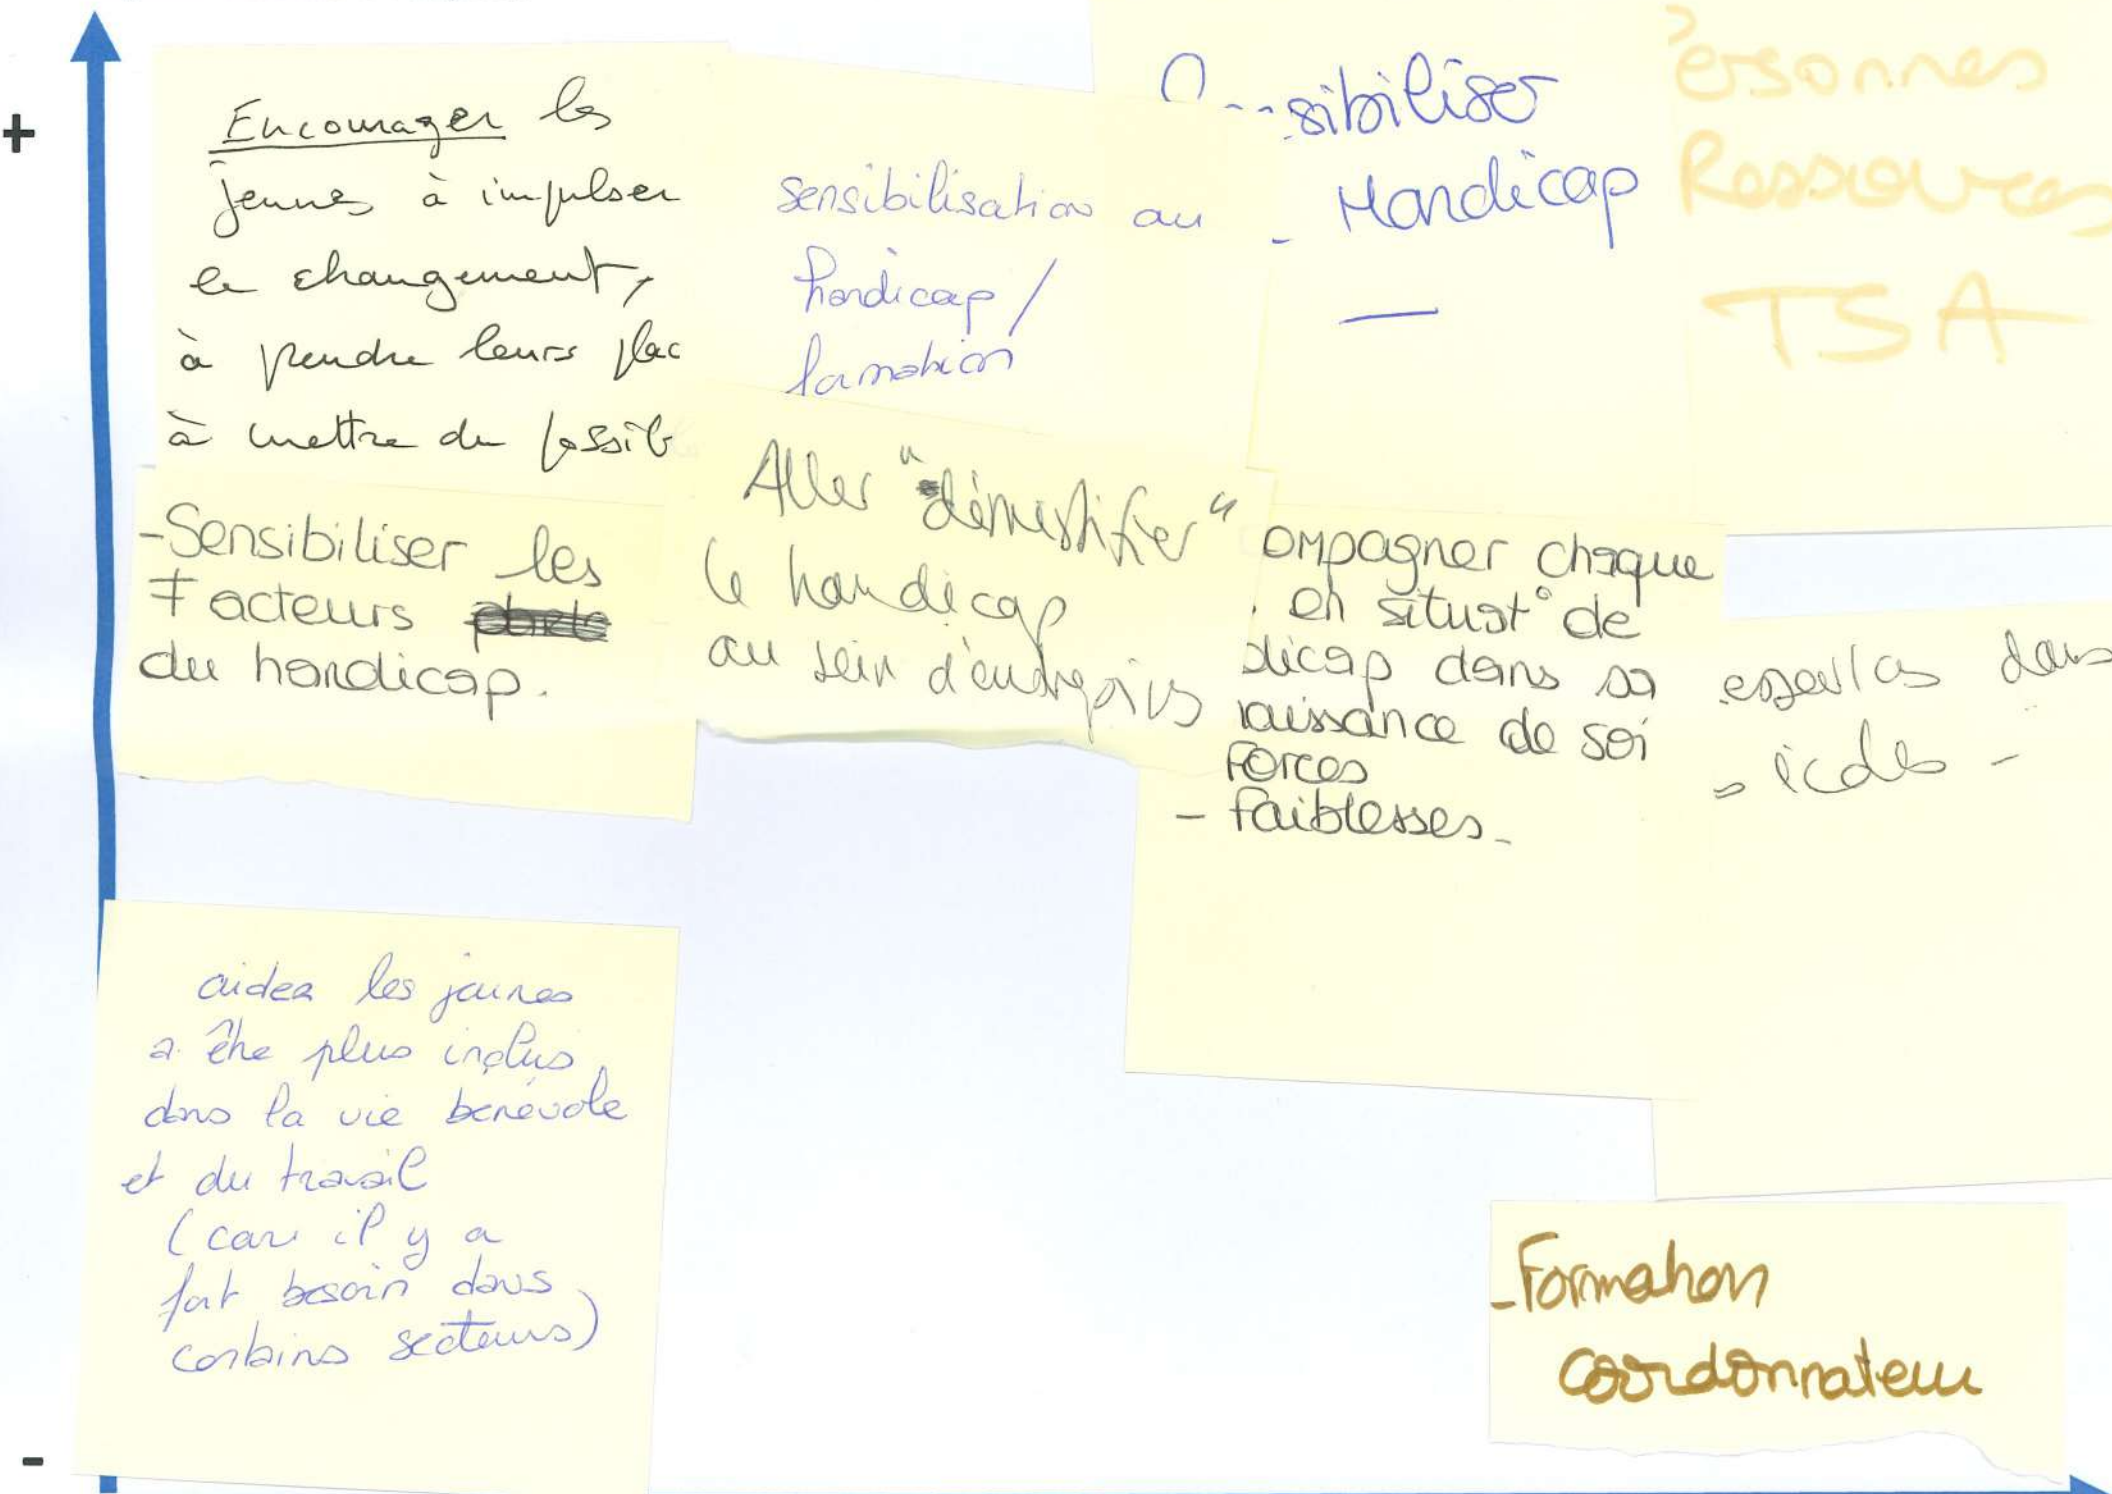 +
Encourager les
jeunes à impulser
le changement,
à prendre leurs plac
à mettre du possib
sensibilisation au
handicap /
formation
sibiliser
- Handicap
—
ersonnes
Ressources
TSA
-Sensibiliser les
≠ acteurs
du handicap.
Aller "démistifier"
le handicap
au sein d'entreprises
ompagner chaque
en situat° de
dicap dans sa
naissance de soi
Forces
- faiblesses-
dans
écoles -
aider les jeunes
a être plus inclus
dans la vie bénévole
et du travail
(car il y a
fort besoin dans
certains secteurs)
-Formation
coordonnateur
-